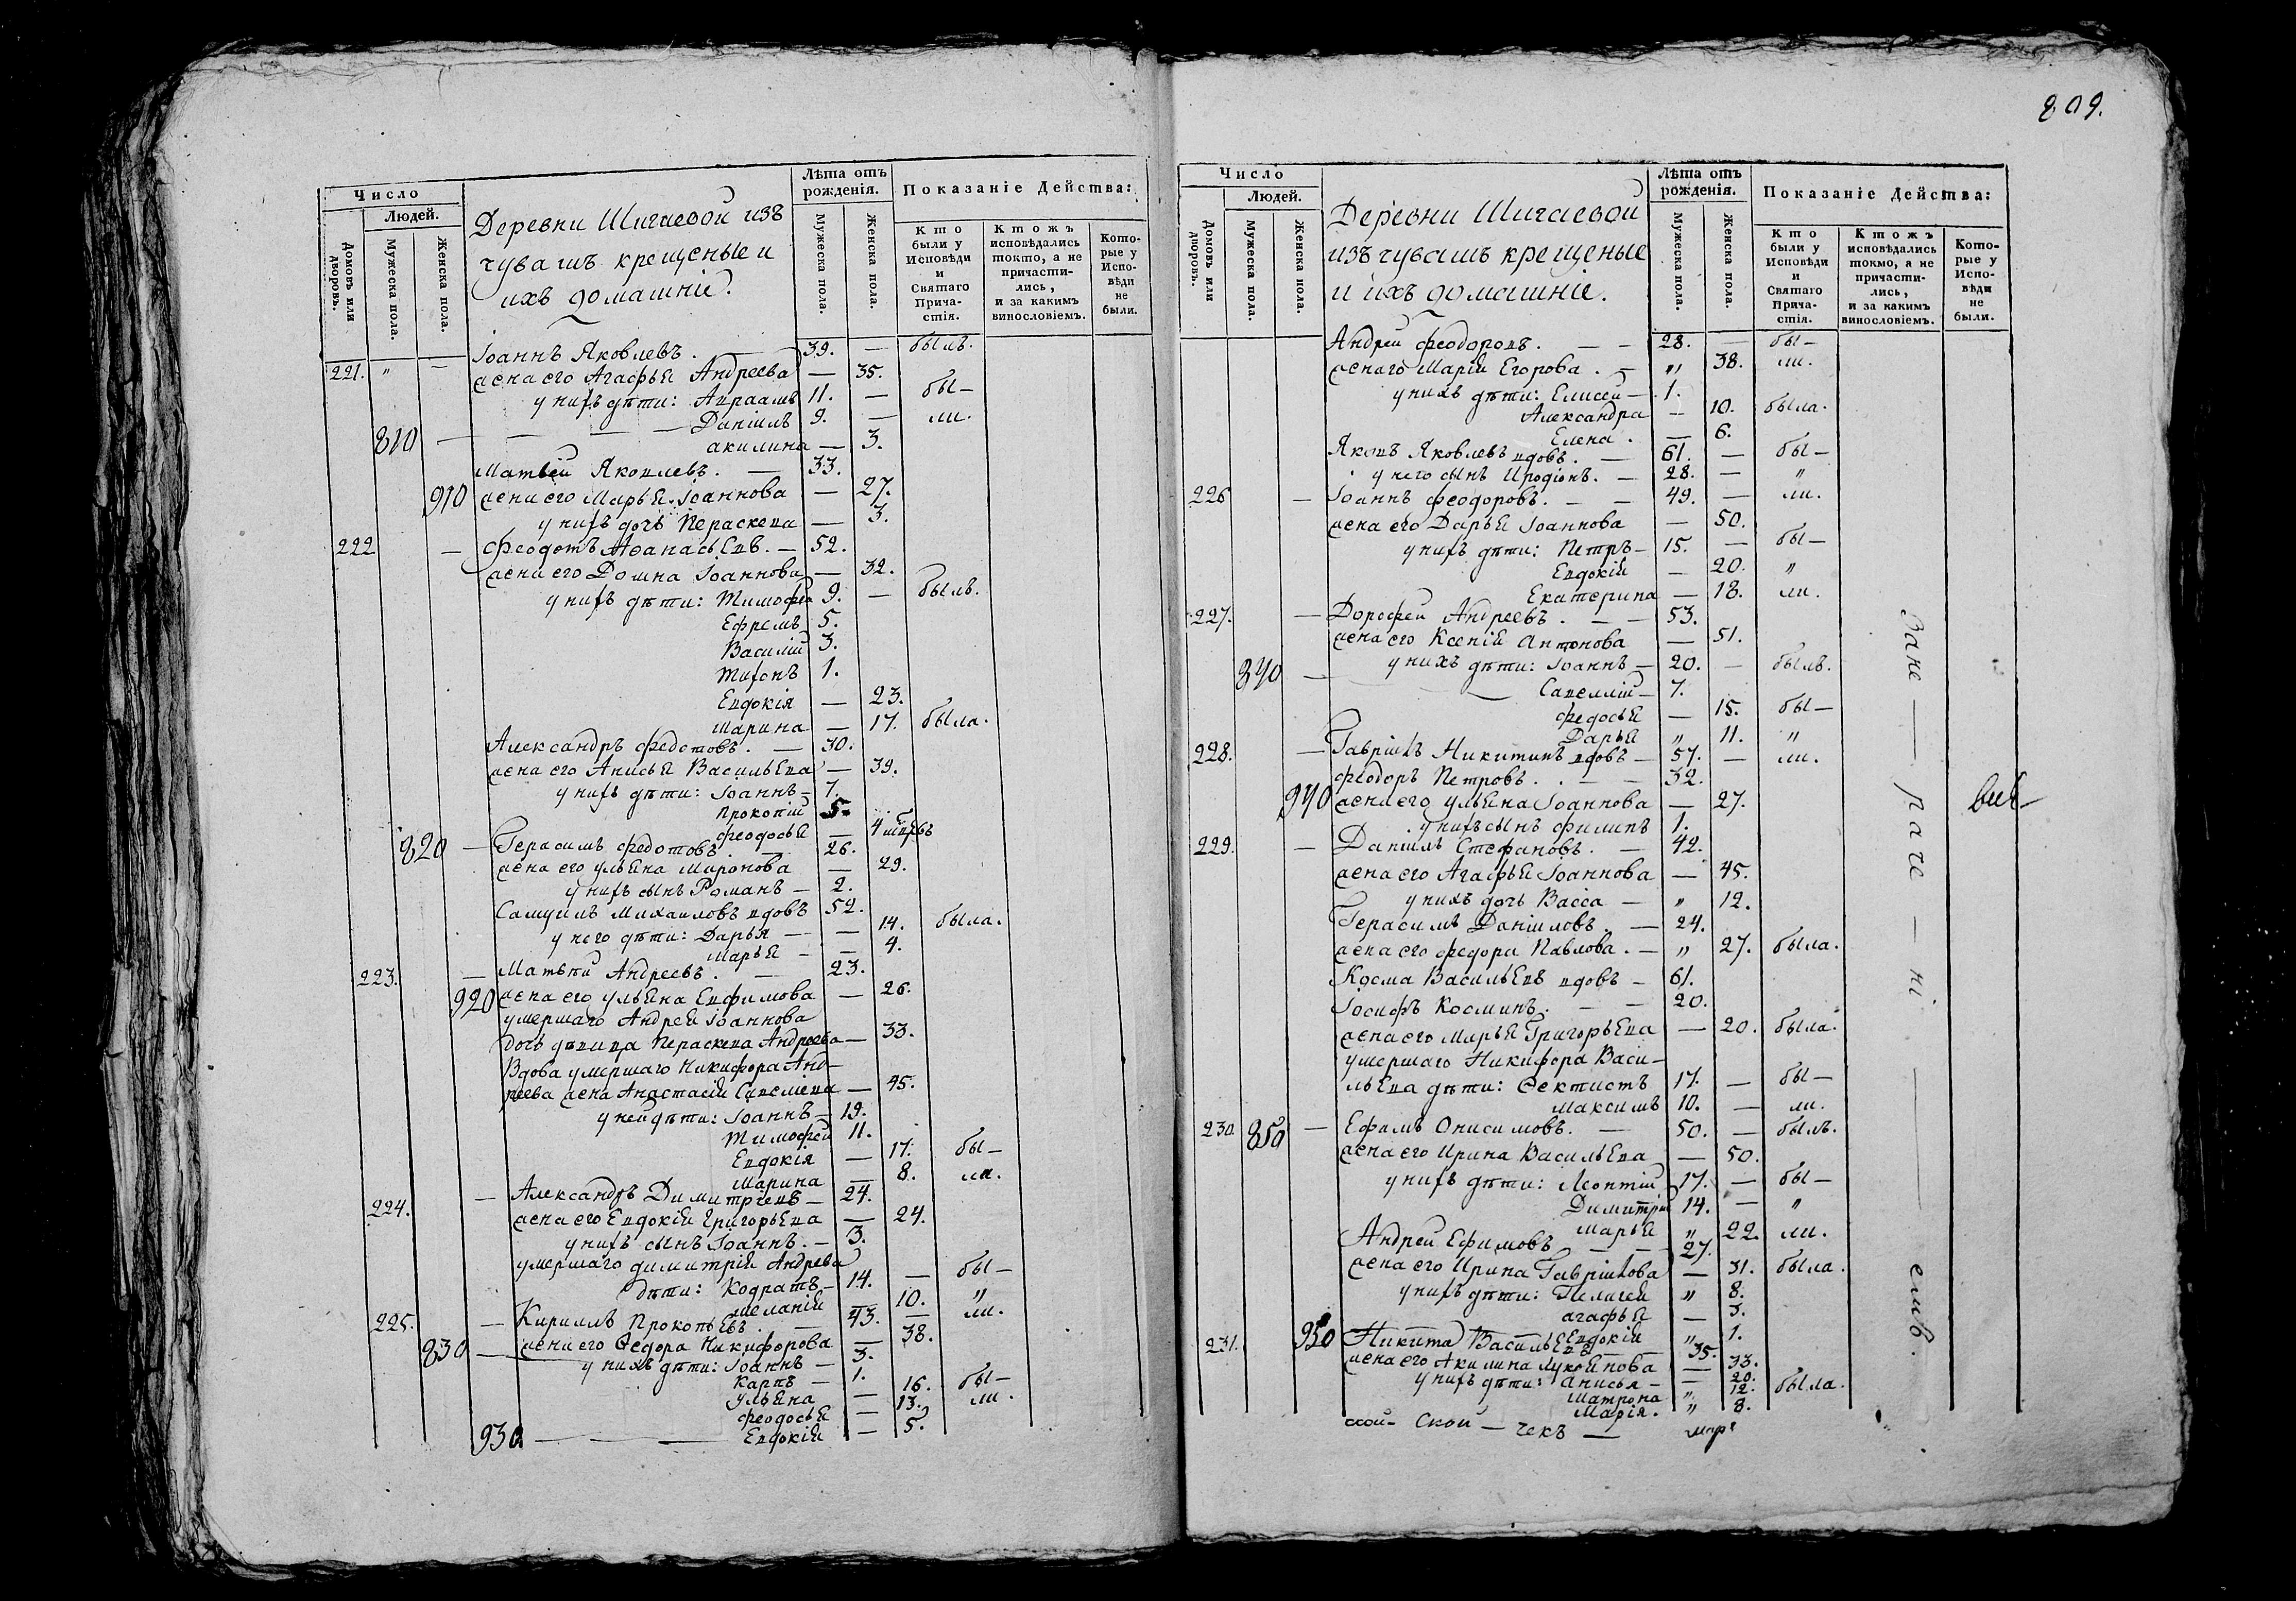 809.
Число
Людей.
Домовъ или дворовъ.
Мужеска пола.
Женска пола.
Деревни Шигаевой изъ
чувашъ крещеные и
ихъ домашніе.
Лѣта отъ рожденія.
Мужеска пола.
Женска пола.
Показаніе Действа:
Кто были у Исповѣди и Святаго Прича-стія.
Ктожъ исповѣдались токмо, а не причасти-лись, и за какимъ винословіемъ.
Кото-рые у Испо-вѣди не были.
Іоаннъ Яковлевъ. 39. — былъ.
221. " — жена его Агафья Андреева — 35.
у нихъ дѣти: Авраамъ 11. — бы—
Даніилъ 9. — ли.
810 — акилина — 3.
Матвей Яковлевъ. — 33.
910 жена его Марья Іоаннова — 27.
у нихъ дочь Пераскева — 3.
222 — Феодотъ Аѳанасьевъ. — 52.
жена его Домна Іоаннова — 32.
у нихъ дѣти: Тимофей 9. — былъ.
Ефремъ 5.
Василій 3.
Тифонъ 1.
Евдокія — 23.
Марина — 17. была.
Александръ Федотовъ. — 30.
жена его Анисья Васильева — 39.
у нихъ дѣти: Іоаннъ — 7.
Прокопій 5.
феодосья — 4
820 — Герасимъ Федотовъ. 26.
жена его Ульяна Миронова — 29.
у нихъ сынъ Романъ — 2.
Самуилъ Михаиловъ вдовъ 52.
у него дѣти: Дарья — — 14. была.
Марья — — 4.
223. — Матвѣй Андреевъ. — 23.
920 жена его Ульяна Евфимова — 26.
умершаго Андрея Іоаннова
дочь девица Пераскева Андреева — 33.
Вдова умершаго Никифора Анд-
реева жена Анастасія Савелиева — 45.
у ней дѣти: Іоаннъ — 19.
Тимофей 11.
Евдокія — 17. бы—
Марина — 8. ли.
224. — Александръ Димитріевъ — 24.
жена его Евдокія Григорьева — 24.
у нихъ сынъ Іоаннъ. — 3.
умершаго димитрія Андреева
дѣти: Кодратъ — 14. — бы—
Меланія — 10. "
225. — Кириллъ Прокопьевъ. — 43. — ли.
830 — жена его Ѳедора Никифорова — 38.
у нихъ дѣти: Іоаннъ — 3.
Карпъ — 1.
Ульяна — 16. бы—
феодосья — 13. ли.
930 — Евдокія — 5.
Число
Людей.
Домовъ или дворовъ.
Мужеска пола.
Женска пола.
Деревни Шигаевой
изъ чувашъ крещеные
и ихъ домашніе.
Лѣта отъ рожденія.
Мужеска пола.
Женска пола.
Показаніе Действа:
Кто были у Исповѣди и Святаго Прича-стія.
Ктожъ исповѣдались токмо, а не причасти-лись, и за какимъ винословіемъ.
Кото-рые у Испо-вѣди не были.
Андрей Феодоровъ. — — 28. — бы—
жена его Марія Егорова. — " 38. ли.
у нихъ дѣти: Елисей — 1.
Александра — 10. была.
Елена. — 6.
Яковъ Яковлевъ вдовъ. — 61. — бы—
у него сынъ Иродіонъ. — 28. — "
226 — Іоаннъ Феодоровъ. — — 49. — ли.
жена его Дарья Іоаннова — 50.
у нихъ дѣти: Петръ — 15. — бы—
Евдокія — 20. "
Екатерина — 18. ли.
227. — Дорофей Андреевъ. — — 53.
жена его Ксенія Антонова — 51.
840 — у нихъ дѣти: Іоаннъ — 20. — былъ.
Савелій — 7.
Федосья — 15. бы—
Дарья " 11. "
228. — Гавріилъ Никитинъ вдовъ — 57. — ли.
Феодоръ Петровъ. — — 32.
940 жена его Ульяна Іоаннова — 27.
у нихъ сынъ Филипъ 1.
229. — Даніилъ Стефановъ. — 42.
жена его Агафья Іоаннова — 45.
у нихъ дочь Васса — " 12.
Герасимъ Даніиловъ. — 24.
жена его Федора Павлова. — " 27. была.
Косма Васильевъ вдовъ — 61.
Іосифъ Косминъ. — — 20.
жена его Марья Григорьева — 20. была.
умершаго Никифора Васи-
льева дѣти: Ѳектистъ 17. — бы—
Максимъ 10. — ли.
230. 850 — Ефимъ Онисимовъ. — 50. — былъ.
жена его Ирина Васильева — 50.
у нихъ дѣти: Леонтій — 17. — бы—
Димитрій 14. — "
Марья " 22. ли.
Андрей Ефимовъ — — 27.
жена его Ирина Гаврилова — 31. была.
у нихъ дѣти: Пелагея " 8.
агафья — 3.
Евдокія " 1.
231. 950 Никита Васильевъ — 35.
жена его Акилина Лукоянова — 33.
у нихъ дѣти: Анисья — — 20.
Матрона " 12. была.
Марія. " 8.
ской — Ской — чекъ —
Зане — раче — ні — еліѣ.